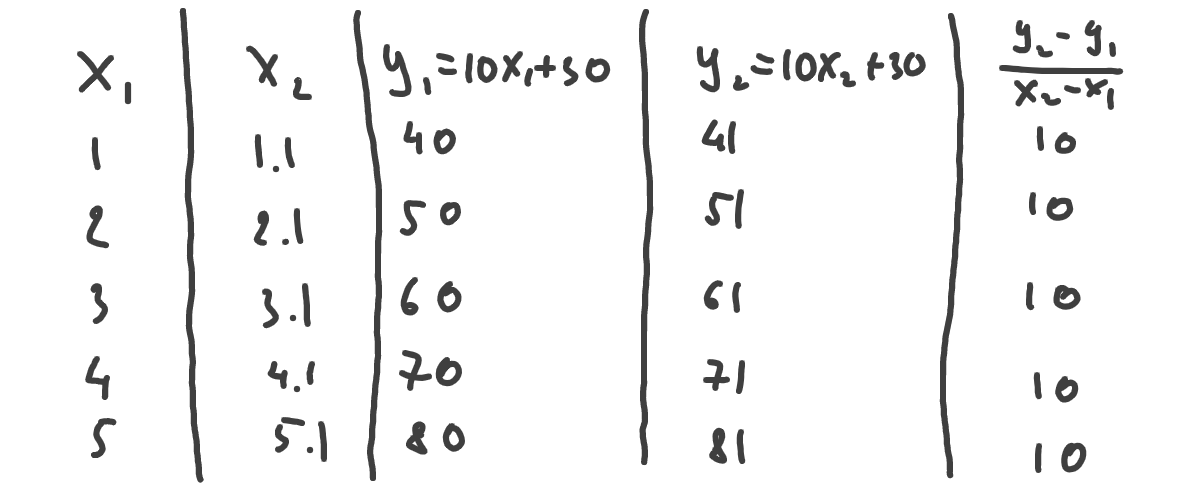 x₁ x₂ y₁=10x₁+30 y₂=10x₂+30 y₂-y₁/x₂-x₁
1 1.1 40 41 10
2 2.1 50 51 10
3 3.1 60 61 10
4 4.1 70 71 10
5 5.1 80 81 10